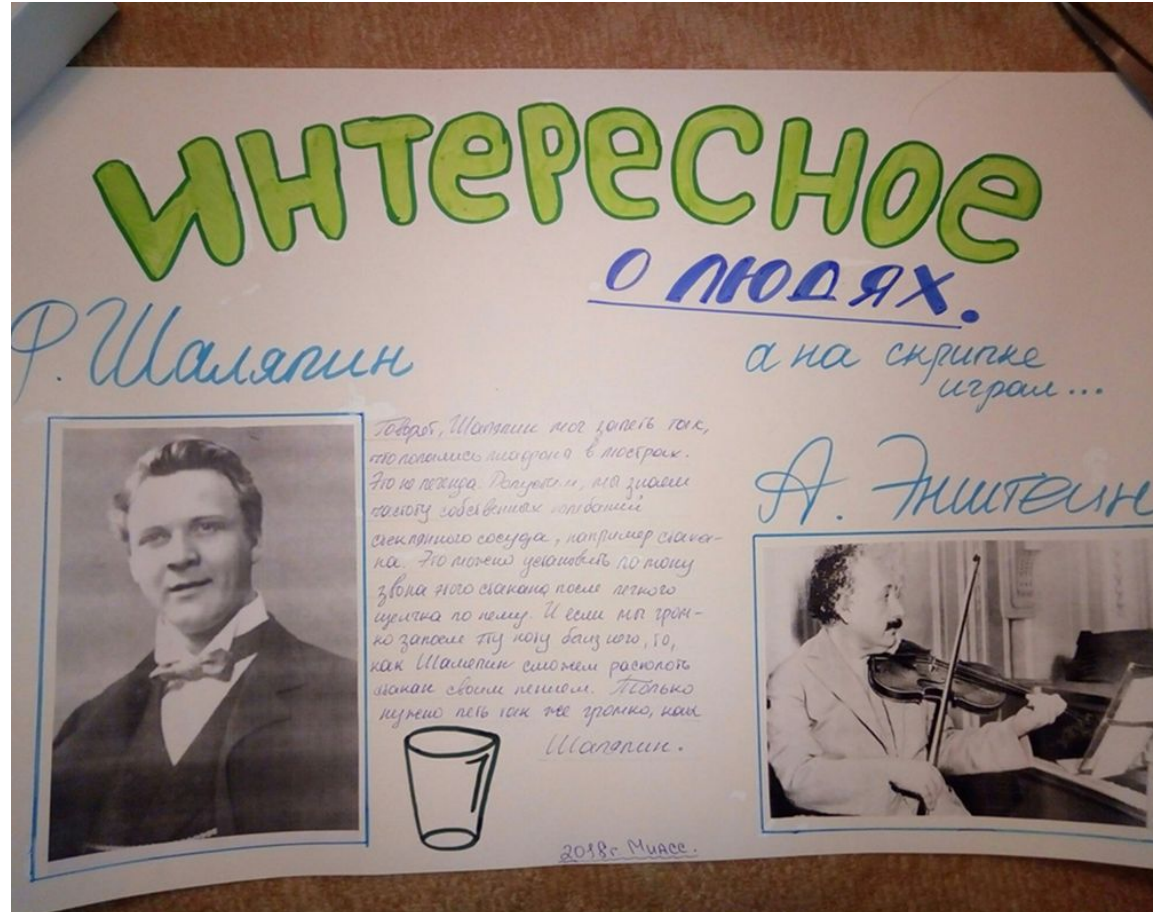 ИНТЕРЕСНОЕ
О ЛЮДЯХ.
Ф. Шаляпин
а на скрипке
играл...
Говорят, Шаляпин мог запеть так,
что лопались плафоны в люстрах.
Это не легенда. Допустим, мы знаем
частоту собственных колебаний
стеклянного сосуда, например стака-
на. Это можно установить по тону
звона этого стакана после легкого
щелчка по нему. И если мы гром-
ко запоем эту ноту близ него, то,
как Шаляпин сможем расколоть
стакан своим пением. Только
нужно петь так же громко, как
Шаляпин.
А. Энштейн
2018г. Миасс.